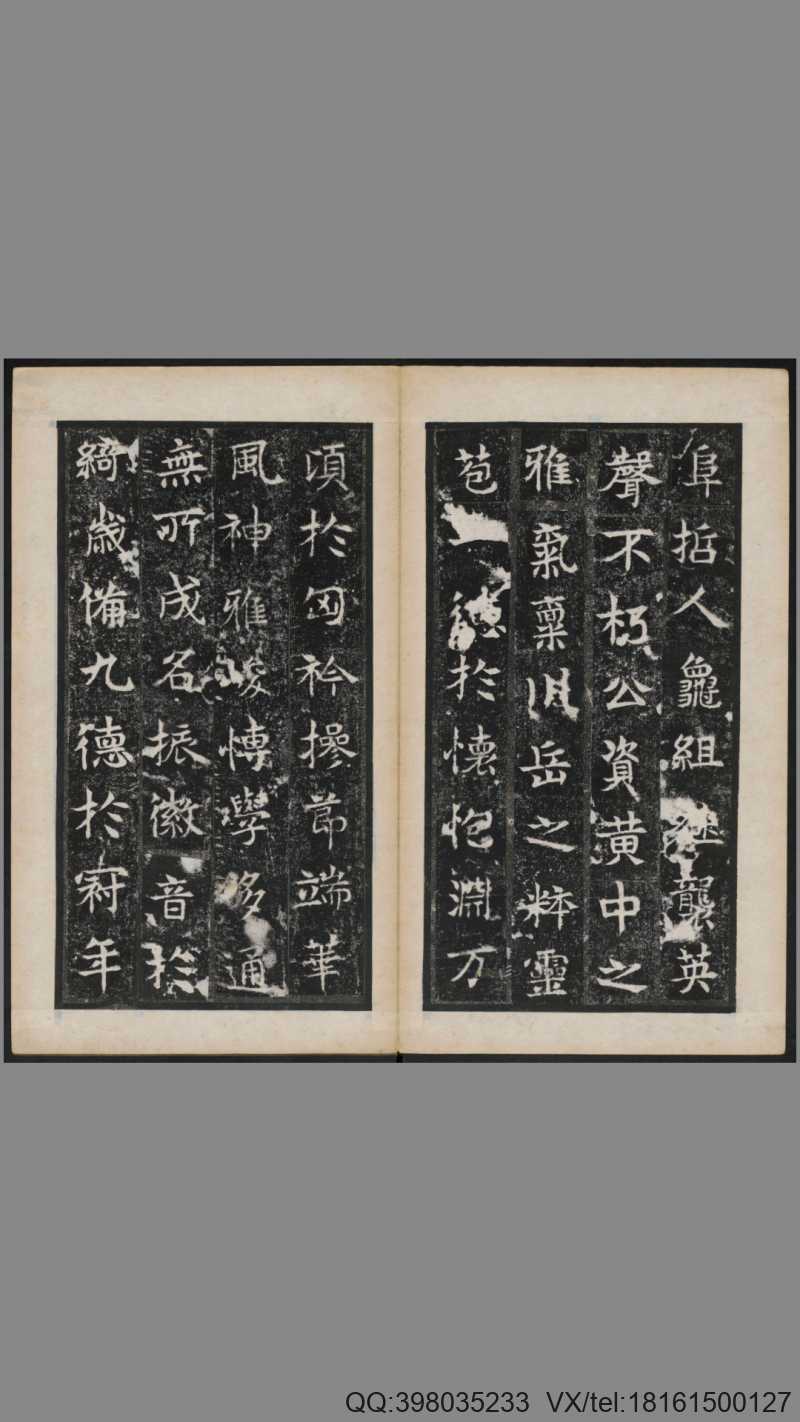 阜哲人龜組继襲英
聲不朽公資黄中之
雅氣稟川岳之粹靈
苞一德於懷抱淵万
頃於匈衿操節端華
風神雅峻博學多通
無所成名振徽音於
綺歲備九德於齠年
QQ:398035233 VX/tel:18161500127